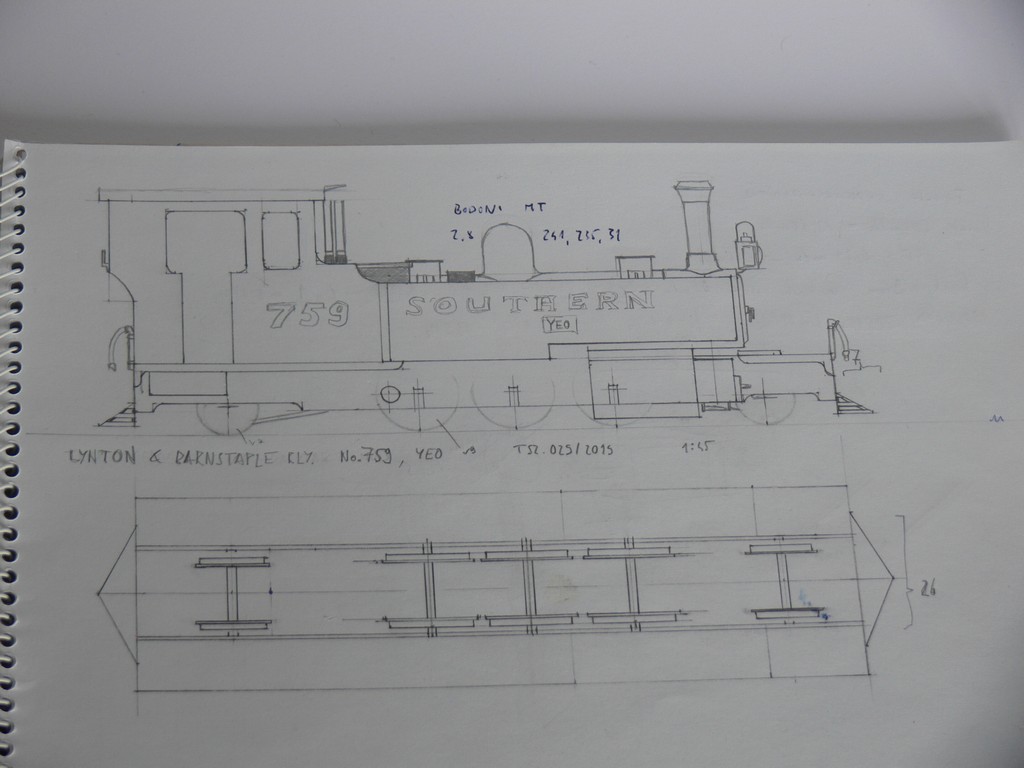 BODONI MT
2,8 241, 215, 31
759 SOUTHERN
YEO
LYNTON & BARNSTAPLE RLY. No.759, YEO TSR. 025/2015 1:45
26